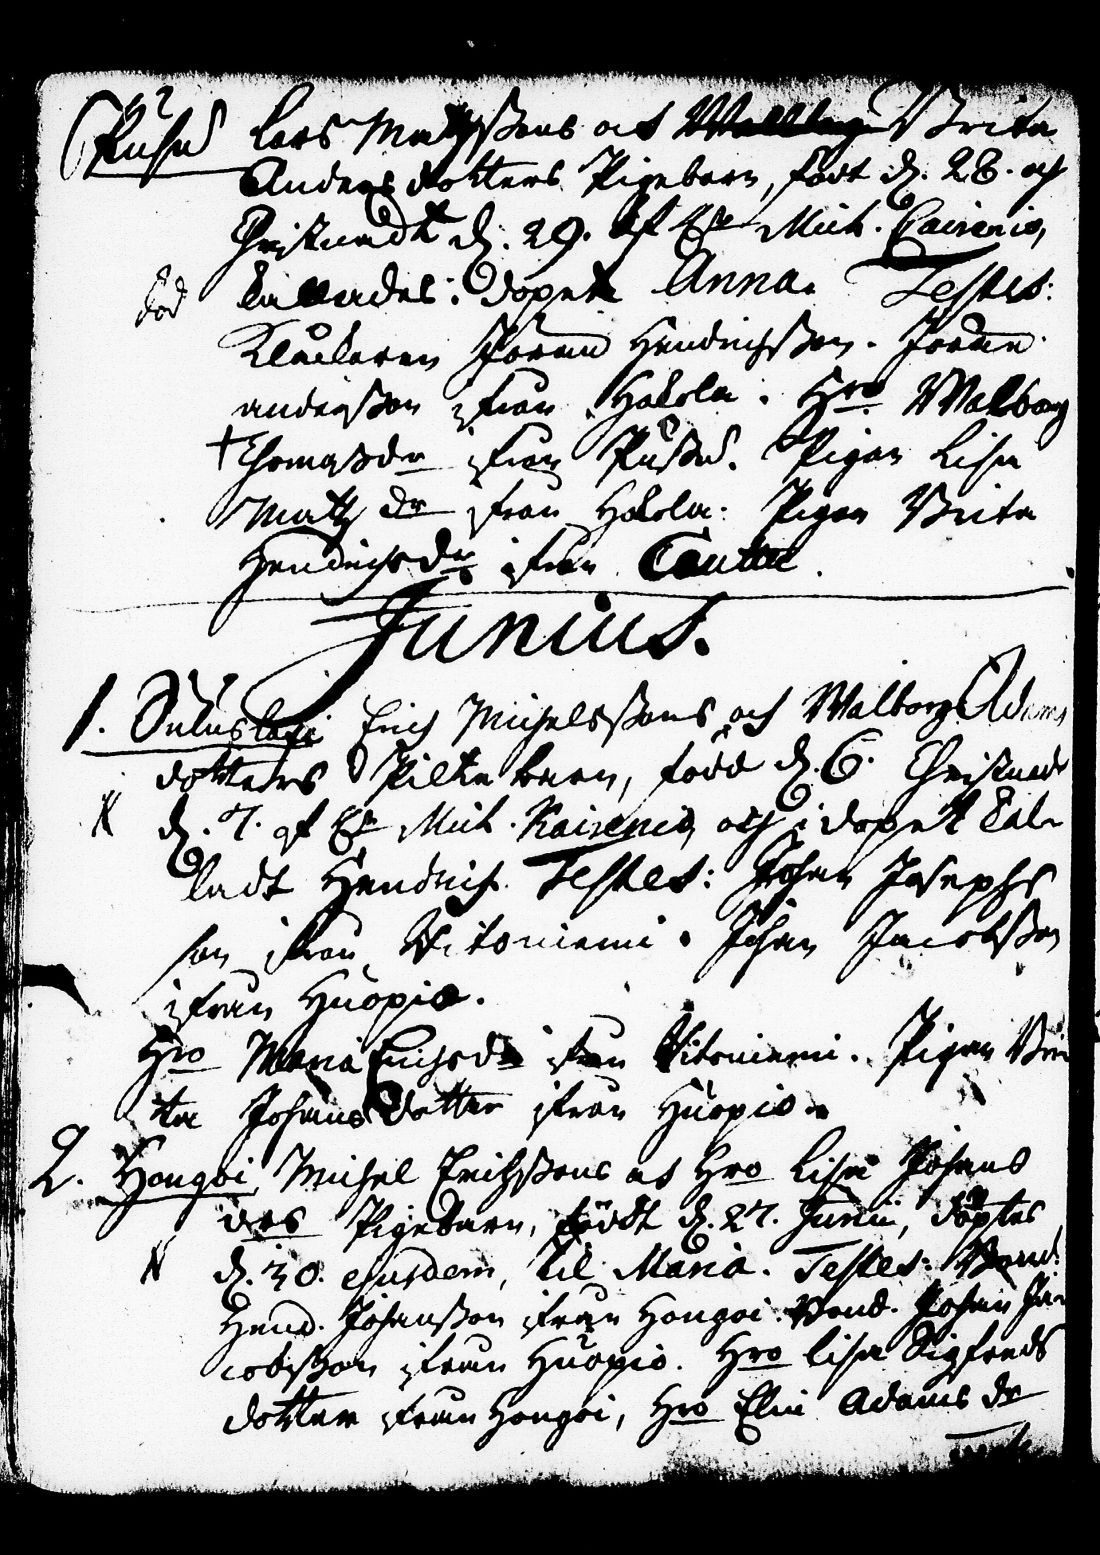 Lars Mattzsons och Brita
Anders dotters Pigebarn, född d. 28. och
Christnadt d. 29. af Hr Mich. Cairenio,
död kallades i dopet Anna. Testes:
Kluckaren Jöran Hendrichsson. Jöran
andersson ifrån Hakola. Hro Walborg
† Thomasdr ifrån Pusu. Pigan Lisa
Mattz dr ifrån Hakola. Pigan Brita
Hendrichsdr ifrån
Junius.
1. Erich Michelssons och Walborg Adams
dotters Pilte barn, född d. 6. Christnadt
N d. 7. af Hr Mich. Kairenio, och i dopet kal-
ladt Hendrich. Testes: Johan Josephs
son ifrån Vitoniemi. Johan Jacobsson
ifrån Huopio.
Hro Maria Erichsdr ifrån Vitoniemi. Pigan Bri
ta Johans dotter ifrån Huopio.
2. Hongoi Michel Erichssons et Hro Lisa Johans
drs Pigebarn, födt d. 27. Junii, döptes
N d. 30. ejusdem, til Maria. Testes: Bond.
Hend. Johansson ifrån Hongoi. Bond. Johan Ja-
cobsson ifrån Huopio. Hro Lisa Sigfreds
dotter ifrån Hongoi, Hro Elin Adams dr